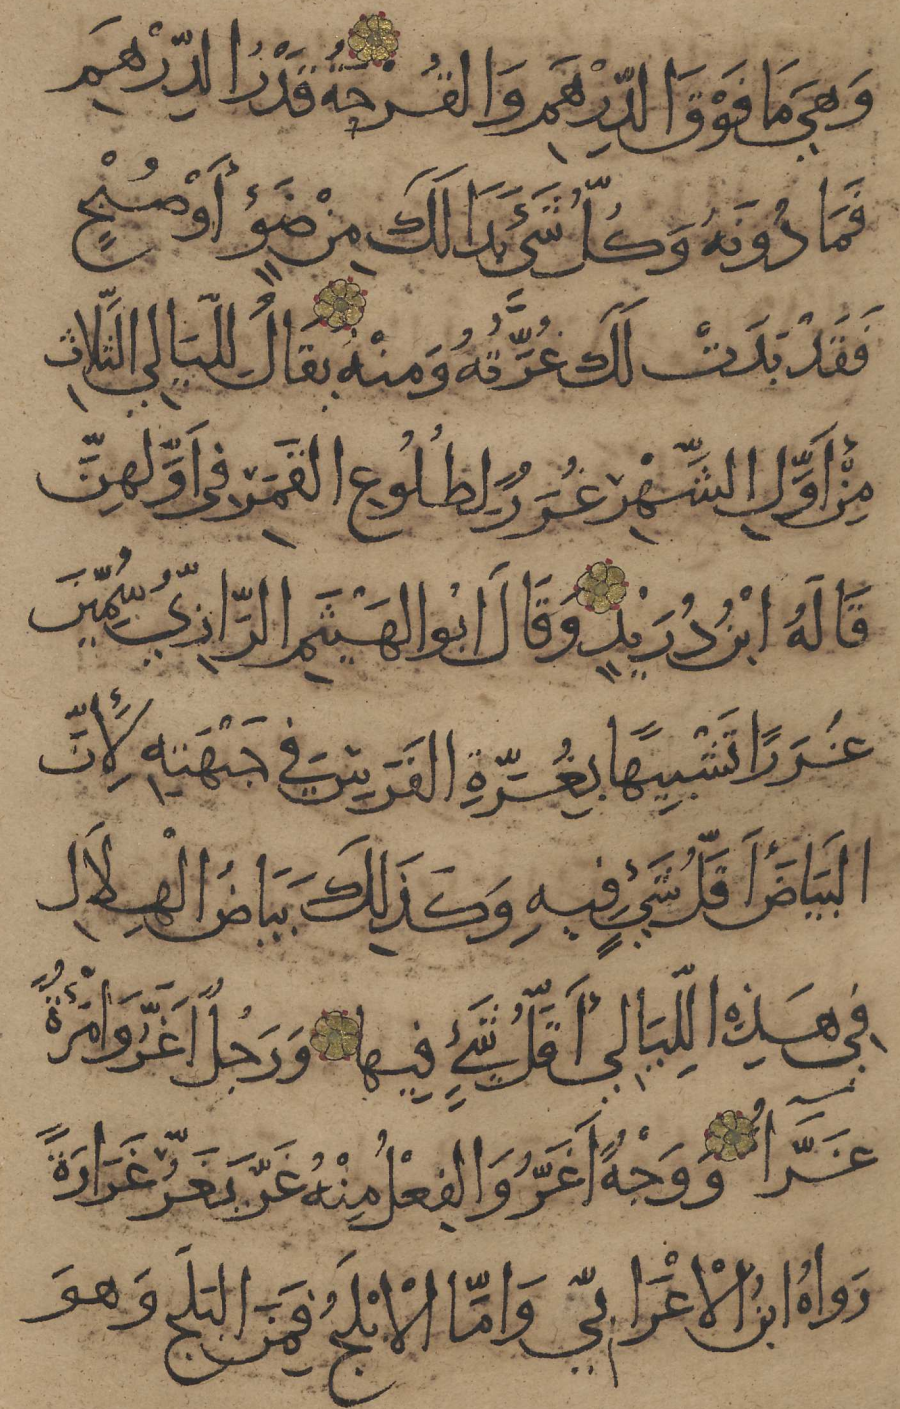 وَهِيَ مَا فَوْقَ الدِّرْهَمِ وَالقُرْحَةُ قَدْرُ الدِّرْهَمِ
فَمَا دُونَهُ وَكُلُّ شَيْءٍ بَدَا لَكَ مِنْ ضَوْءٍ أَوْ صُبْحٍ
فَقَدْ بَدَتْ لَكَ غُرَّتُهُ وَمِنْهُ يُقَالُ لِلَّيَالِي الثَّلَاثِ
مِنْ أَوَّلِ الشَّهْرِ غُرَرٌ لِطُلُوعِ القَمَرِ فِي أَوَّلِهِنَّ
قَالَهُ ابْنُ دُرَيْدٍ وَقَالَ ابُو الهَيْثَمِ الرَّازِيُّ سُمِّينَ
غُرَرًا تَشْبِيهًا بِغُرَّةِ الفَرَسِ فِي جَبْهَتِهِ لِأَنَّ
البَيَاضَ أَقَلُّ شَيْءٍ فِيهِ وَكَذَلِكَ بَيَاضُ الْهِلَالِ
فِي هَذِهِ اللَّيَالِي أَقَلُّ شَيْءٍ فِيهَا وَرَجُلٌ اَغَرُّ وَامْرَأَةٌ
غَرَّاءُ وَوَجْهٌ أَغَرُّ وَالفِعْلُ مِنْهُ غَرَّ يَغَرُّ غَرَارَةً
رَوَاهُ ابنُ الْاعْرَابِيّ وَامَّا الْابْلَجُ فَمِنَ البَلَجِ وَهوَ